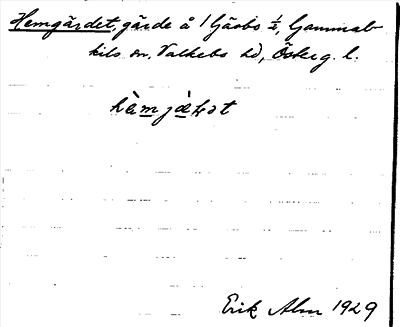 Hemgärdet, gärde å 1 Gärbo ½, Gammal-
kils sn, Valkebo hd, Österg. l.
Erik Alm 1929